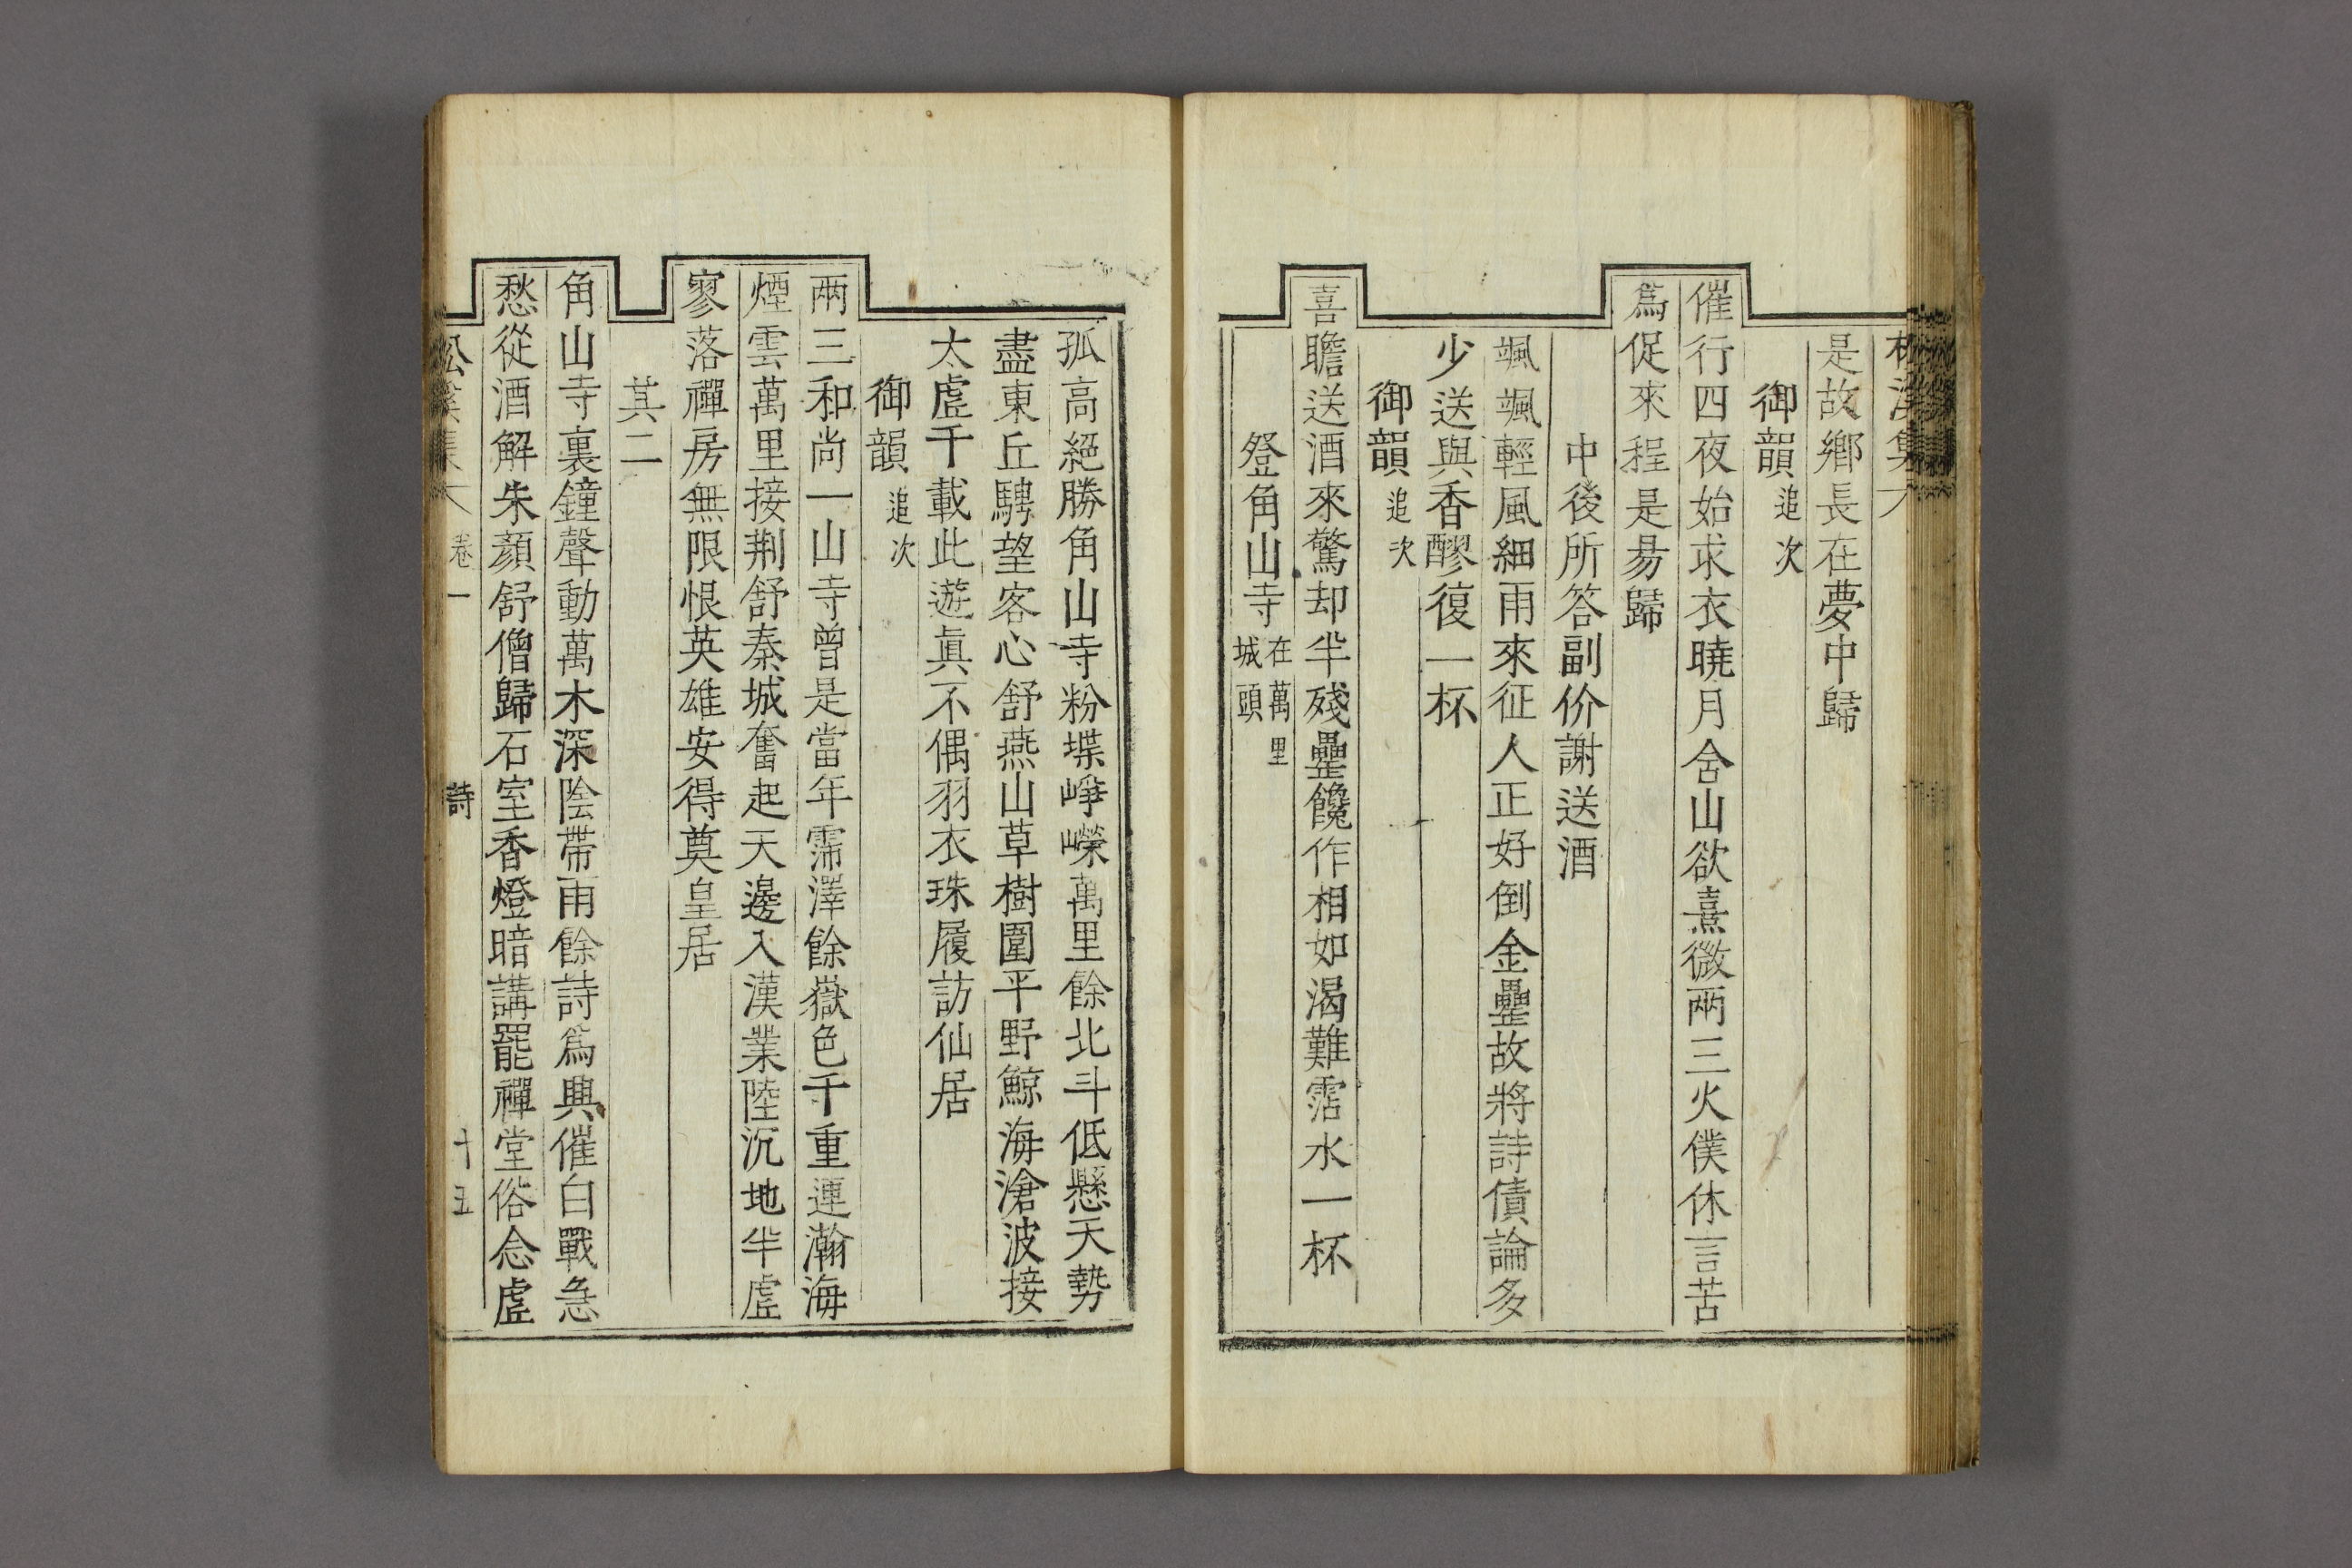 是故鄉長在夢中歸
御韻追次
催行四夜始求衣曉月含山欲熹微兩三火僕休言苦
爲促來程是易歸
中後所答副价謝送酒
颯颯輕風細雨來征人正好倒金罍故將詩債論多
少送與香醪復一杯
御韻追次
喜瞻送酒來驚却半殘罍饞作相如渴難霑水一杯
登角山寺在萬里城頭
孤高絕勝角山寺粉堞崢嶸萬里餘北斗低懸天勢
盡東丘騁望客心舒燕山草樹圍平野鯨海滄波接
太虛千載此遊眞不偶羽衣珠履訪仙居
御韻追次
兩三和尚一山寺曾是當年霈澤餘嶽色千重連瀚海
煙雲萬里接荆舒秦城奮起天邊入漢業陸沉地半虛
寥落禪房無限恨英雄安得奠皇居
其二
角山寺裏鐘聲動萬木深陰帶雨餘詩爲興催白戰急
愁從酒解朱顏舒僧歸石室香燈暗講罷禪堂俗念虛
松溪集 卷一 詩 十五